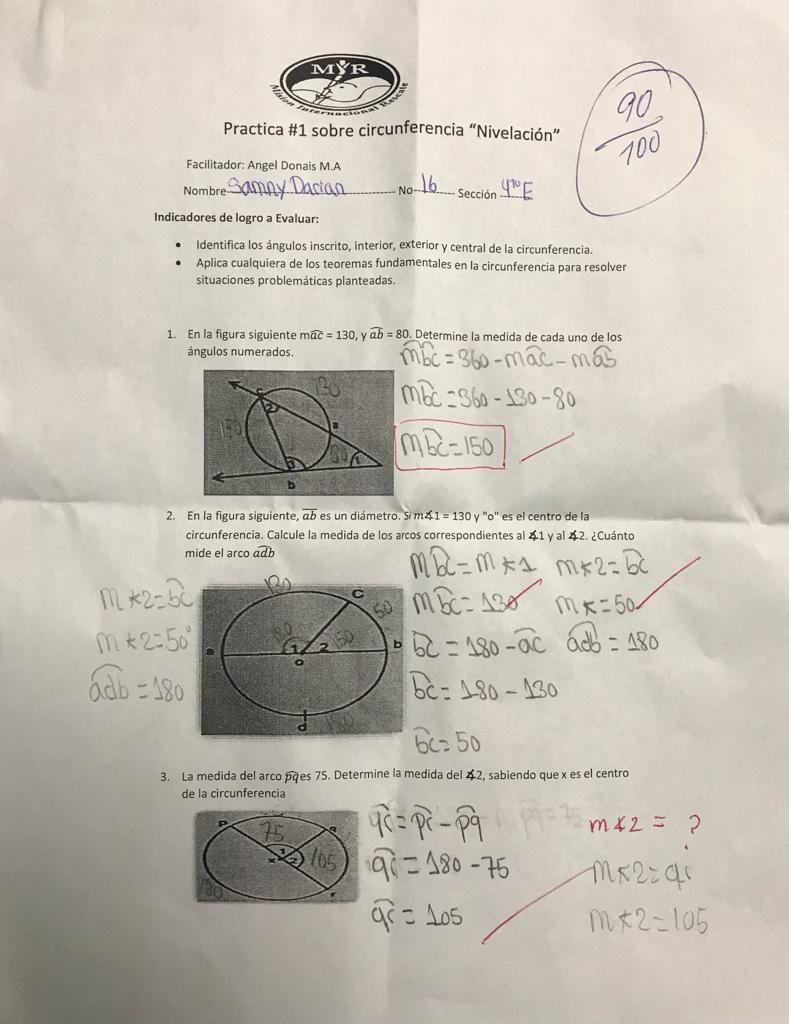 MYR
Mision Internacional Rescate
90
100
Practica #1 sobre circunferencia "Nivelación"
Facilitador: Angel Donais M.A
Nombre Samny Darian No 16 Sección 4to E
Indicadores de logro a Evaluar:
• Identifica los ángulos inscrito, interior, exterior y central de la circunferencia.
• Aplica cualquiera de los teoremas fundamentales en la circunferencia para resolver
situaciones problemáticas planteadas.
1. En la figura siguiente mac = 130, y ab = 80. Determine la medida de cada uno de los
ángulos numerados.
mbc = 360 - mac - mab
mbc = 360 - 130 - 80
mbc = 150
c 130
2
150 a
80 1
3
b
2. En la figura siguiente, ab es un diámetro. Si m∡1 = 130 y "o" es el centro de la
circunferencia. Calcule la medida de los arcos correspondientes al ∡1 y al ∡2. ¿Cuánto
mide el arco adb
m∡2 = bc
m∡2 = 50°
adb = 180
130 c 50
130 50
a 1 2 b
o
d 180
mbc = m∡1 m∡2 = bc
mbc = 130 m∡ = 50
bc = 180 - ac adb = 180
bc = 180 - 130
bc = 50
3. La medida del arco pq es 75. Determine la medida del ∡2, sabiendo que x es el centro
de la circunferencia
p 75 q
x 1 2 105
180 r
qr = pr - pq m∡2 = ?
qr = 180 - 75 m∡2 = qr
qr = 105 m∡2 = 105